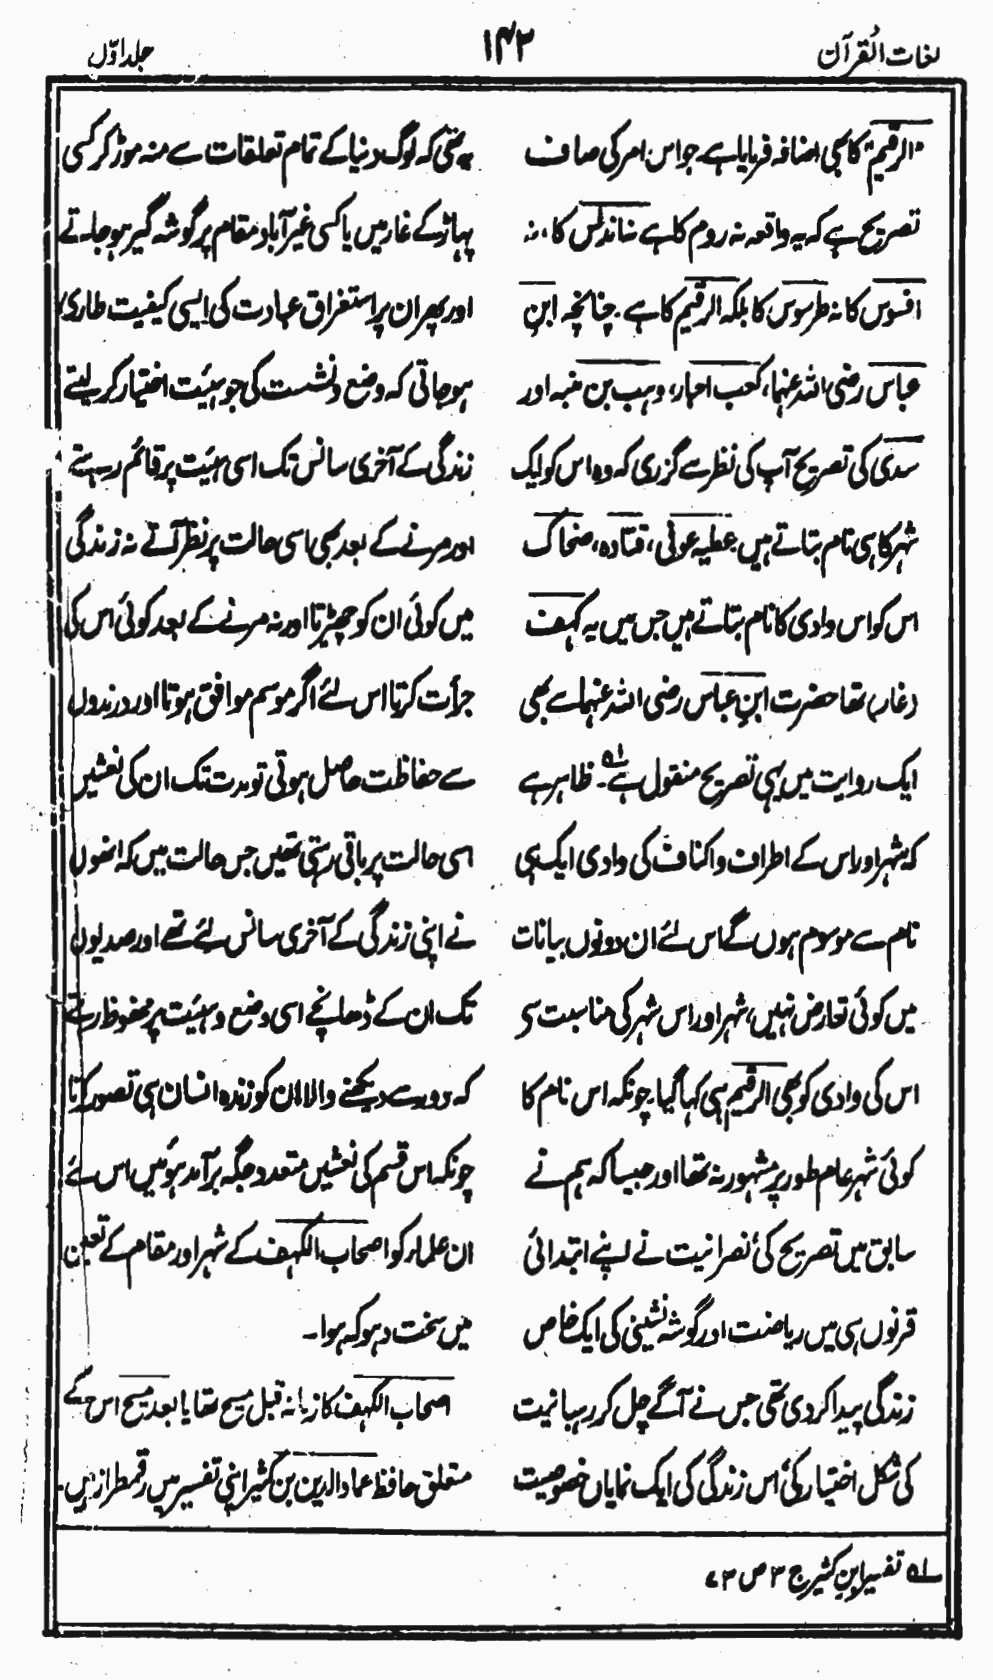 لغات القرآن
۱۴۲
جلد اوّل
"الرقیم" کا بھی اضافہ فرمایا ہے جو اس امر کی صاف
تصریح ہے کہ یہ واقعہ نہ روم کا ہے نہ اندلس کا، نہ
افسوس کا نہ طرسوس کا بلکہ الرقیم کا ہے۔ چنانچہ ابن
عباس رضی اللہ عنہما، کعب احبار، وہب بن منبہ اور
سدی کی تصریح آپ کی نظر سے گزری کہ وہ اس کو ایک
شہر کا ہی نام بتاتے ہیں۔ عطیہ عوفی، قتادہ، ضحاک
اس کو اس وادی کا نام بتاتے ہیں جس میں یہ کہف
(غار) تھا حضرت ابن عباس رضی اللہ عنہما سے بھی
ایک روایت میں یہی تصریح منقول ہے۔ ۵۱ ظاہر ہے
کہ شہر اور اس کے اطراف و اکناف کی وادی ایک ہی
نام سے موسوم ہوں گے اس لئے ان دونوں بیانات
میں کوئی تعارض نہیں، شہر اور اس شہر کی مناسبت سے
اس کی وادی کو بھی الرقیم ہی کہا گیا۔ چونکہ اس نام کا
کوئی شہر عام طور پر مشہور نہ تھا اور جیسا کہ ہم نے
سابق میں تصریح کی نصرانیت نے اپنے ابتدائی
قرنوں ہی میں ریاضت اور گوشہ نشینی کی ایک خاص
زندگی پیدا کر دی تھی جس نے آگے چل کر رہبانیت
کی شکل اختیار کی، اس زندگی کی ایک نمایاں خصوصیت
یہ تھی کہ لوگ دنیا کے تمام تعلقات سے منہ موڑ کر کسی
پہاڑ کے غار میں یا کسی غیر آباد مقام پر گوشہ گیر ہو جاتے
اور پھر ان پر استغراق عبادت کی ایسی کیفیت طاری
ہو جاتی کہ وضع و نشست کی جو ہیئت اختیار کر لیتے
زندگی کے آخری سانس تک اسی ہیئت پر قائم رہتے
اور مرنے کے بعد بھی اسی حالت پر نظر آتے نہ زندگی
میں کوئی ان کو چھیڑتا اور نہ مرنے کے بعد کوئی اس کی
جرأت کرتا اس لئے اگر موسم موافق ہوتا اور درندوں
سے حفاظت حاصل ہوتی تو مدت تک ان کی نعشیں
اسی حالت پر باقی رہتی تھیں جس حالت میں کہ انھوں
نے اپنی زندگی کے آخری سانس لئے تھے اور صدیوں
تک ان کے ڈھانچے اسی وضع و ہیئت پر محفوظ رہتے
کہ دور سے دیکھنے والا ان کو زندہ انسان ہی تصور کرتا
چونکہ اس قسم کی نعشیں متعدد جگہ برآمد ہوئیں اس لئے
ان علماء کو اصحاب الکہف کے شہر اور مقام کے تعین
میں سخت دہوکہ ہوا۔
اصحاب الکہف کا زمانہ قبل مسیح تھا یا بعد مسیح اس کے
متعلق حافظ عماد الدین بن کثیر اپنی تفسیر میں رقمطراز ہیں۔
۵۱ تفسیر ابن کثیر ج ۳ ص ۷۳